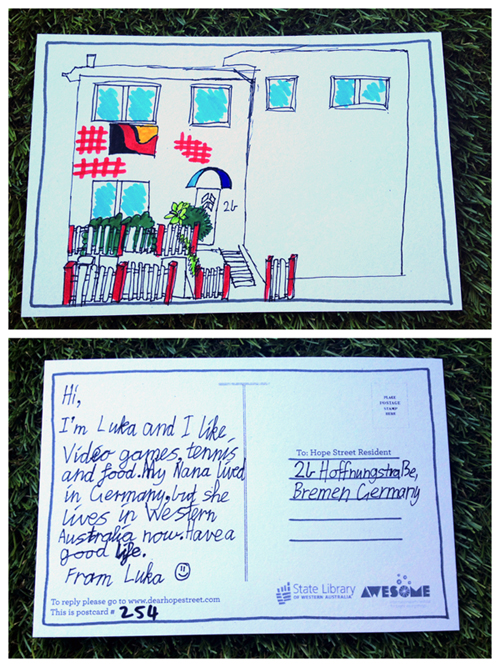 26
Hi,
I'm Luka and I like
Video games, tennis
and food. my Nana lived
in Germany, but she
lives in Western
Australia now. Have a
good life.
Fram Luka
To reply please go to www.dearhopestreet.com
This is postcard # 254
PLACE
POSTAGE
STAMP
HERE
To: Hope Street Resident
26 Hoffnungstraße,
Bremen Germany
State Library
OF WESTERN AUSTRALIA
AWESOME